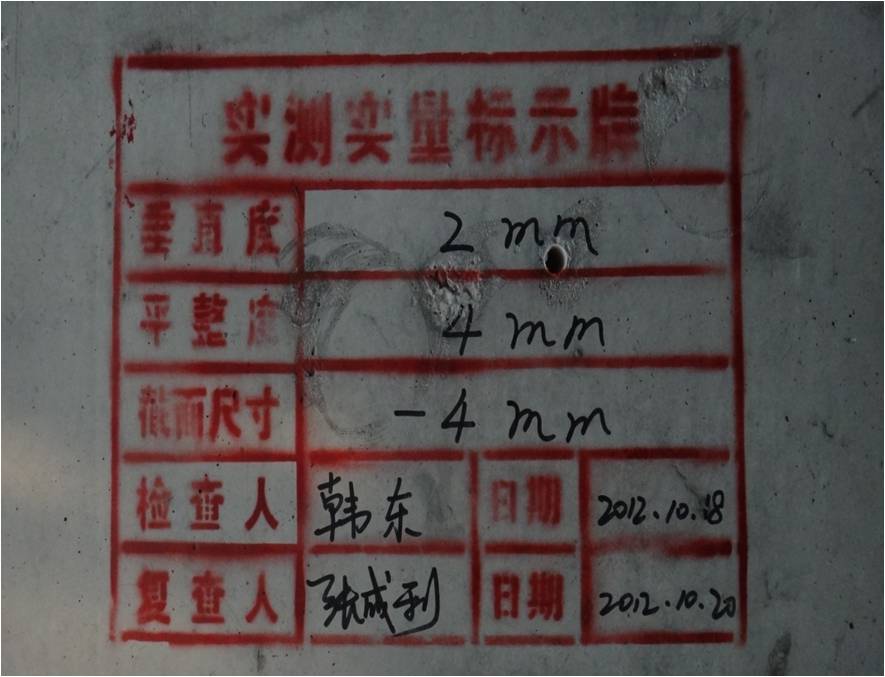 实测实量标示牌
垂直度 2 mm
平整度 4 mm
截面尺寸 -4 mm
检查人 韩东 日期 2012.10.18
复查人 张成利 日期 2012.10.20